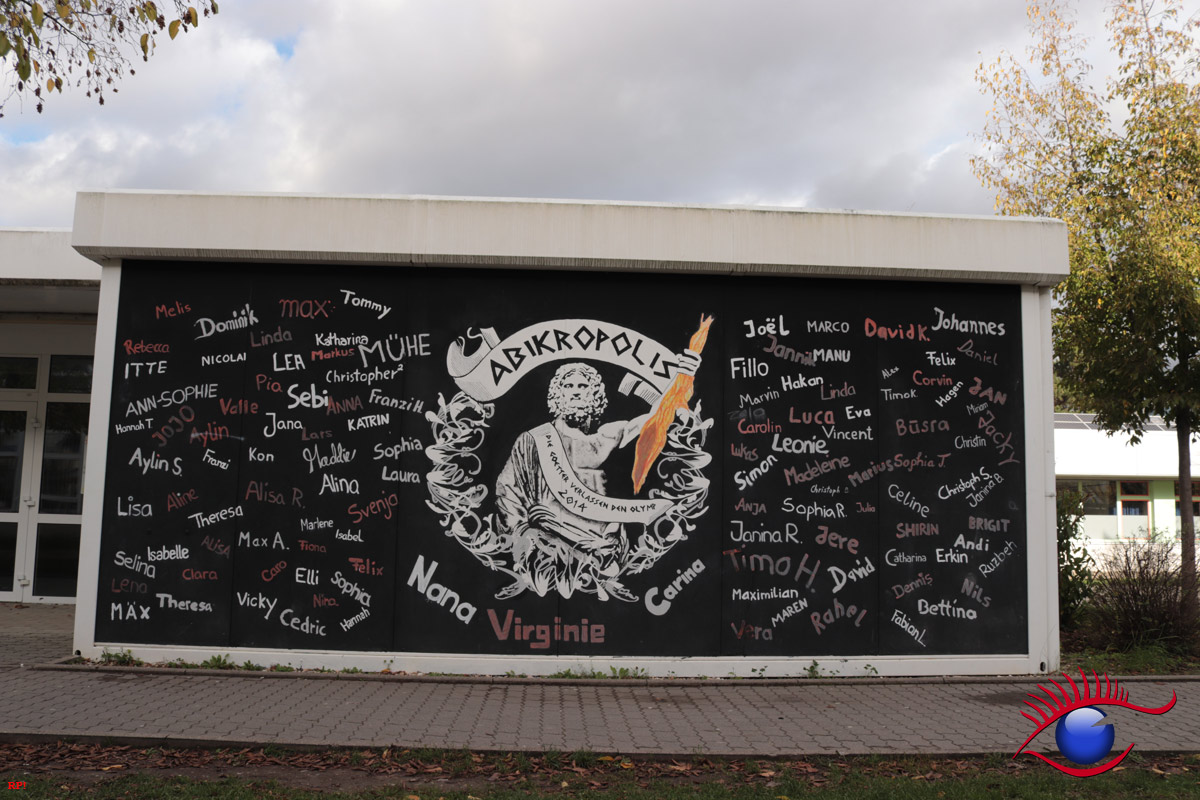 Melis
max
Tommy
Dominik
Linda
Katharina
MÜHE
Rebecca
NICOLAI
LEA
Markus
ITTE
Christopher²
Pia
ANN-SOPHIE
Sebi
ANNA
Franzi H.
Valle
JOJO
Hannah T
Aylin
Jana
KATRIN
Lars
Sophia
Franzi
Kon
Maddie
Aylin S
Laura
Alina
Lisa
Aline
Alisa R.
Svenja
Theresa
Marlene
Isabel
Alisa
Max A.
Fiona
Selina
Isabelle
Caro
Felix
Clara
Elli
Sophia
Lena
Nina
MÄX
Theresa
Vicky
Cedric
Hannah
ABIKROPOLIS
DIE GOETTER VERLASSEN DEN OLYMP
2014
Nana
Virginie
Carina
Joël
MARCO
David K.
Johannes
Jannik
MANU
Felix
Daniel
Fillo
Alex
Corvin
Hakan
Linda
Timok
Hagen
JAN
Marvin
Miriam
Carolin
Luca
Eva
Büsra
Jacky
Vincent
Lukas
Leonie
Christin
Simon
Madeleine
Marius
Sophia J.
Christoph
Christoph S.
Janina B.
Celine
ANJA
Sophia R.
Julia
Janina R.
Jere
SHIRIN
BRIGIT
Andi
Timo H.
David
Catharina
Erkin
Ruzbeh
Dennis
Nils
Maximilian
MAREN
Rahel
Bettina
Vera
Fabian L.
RPJ